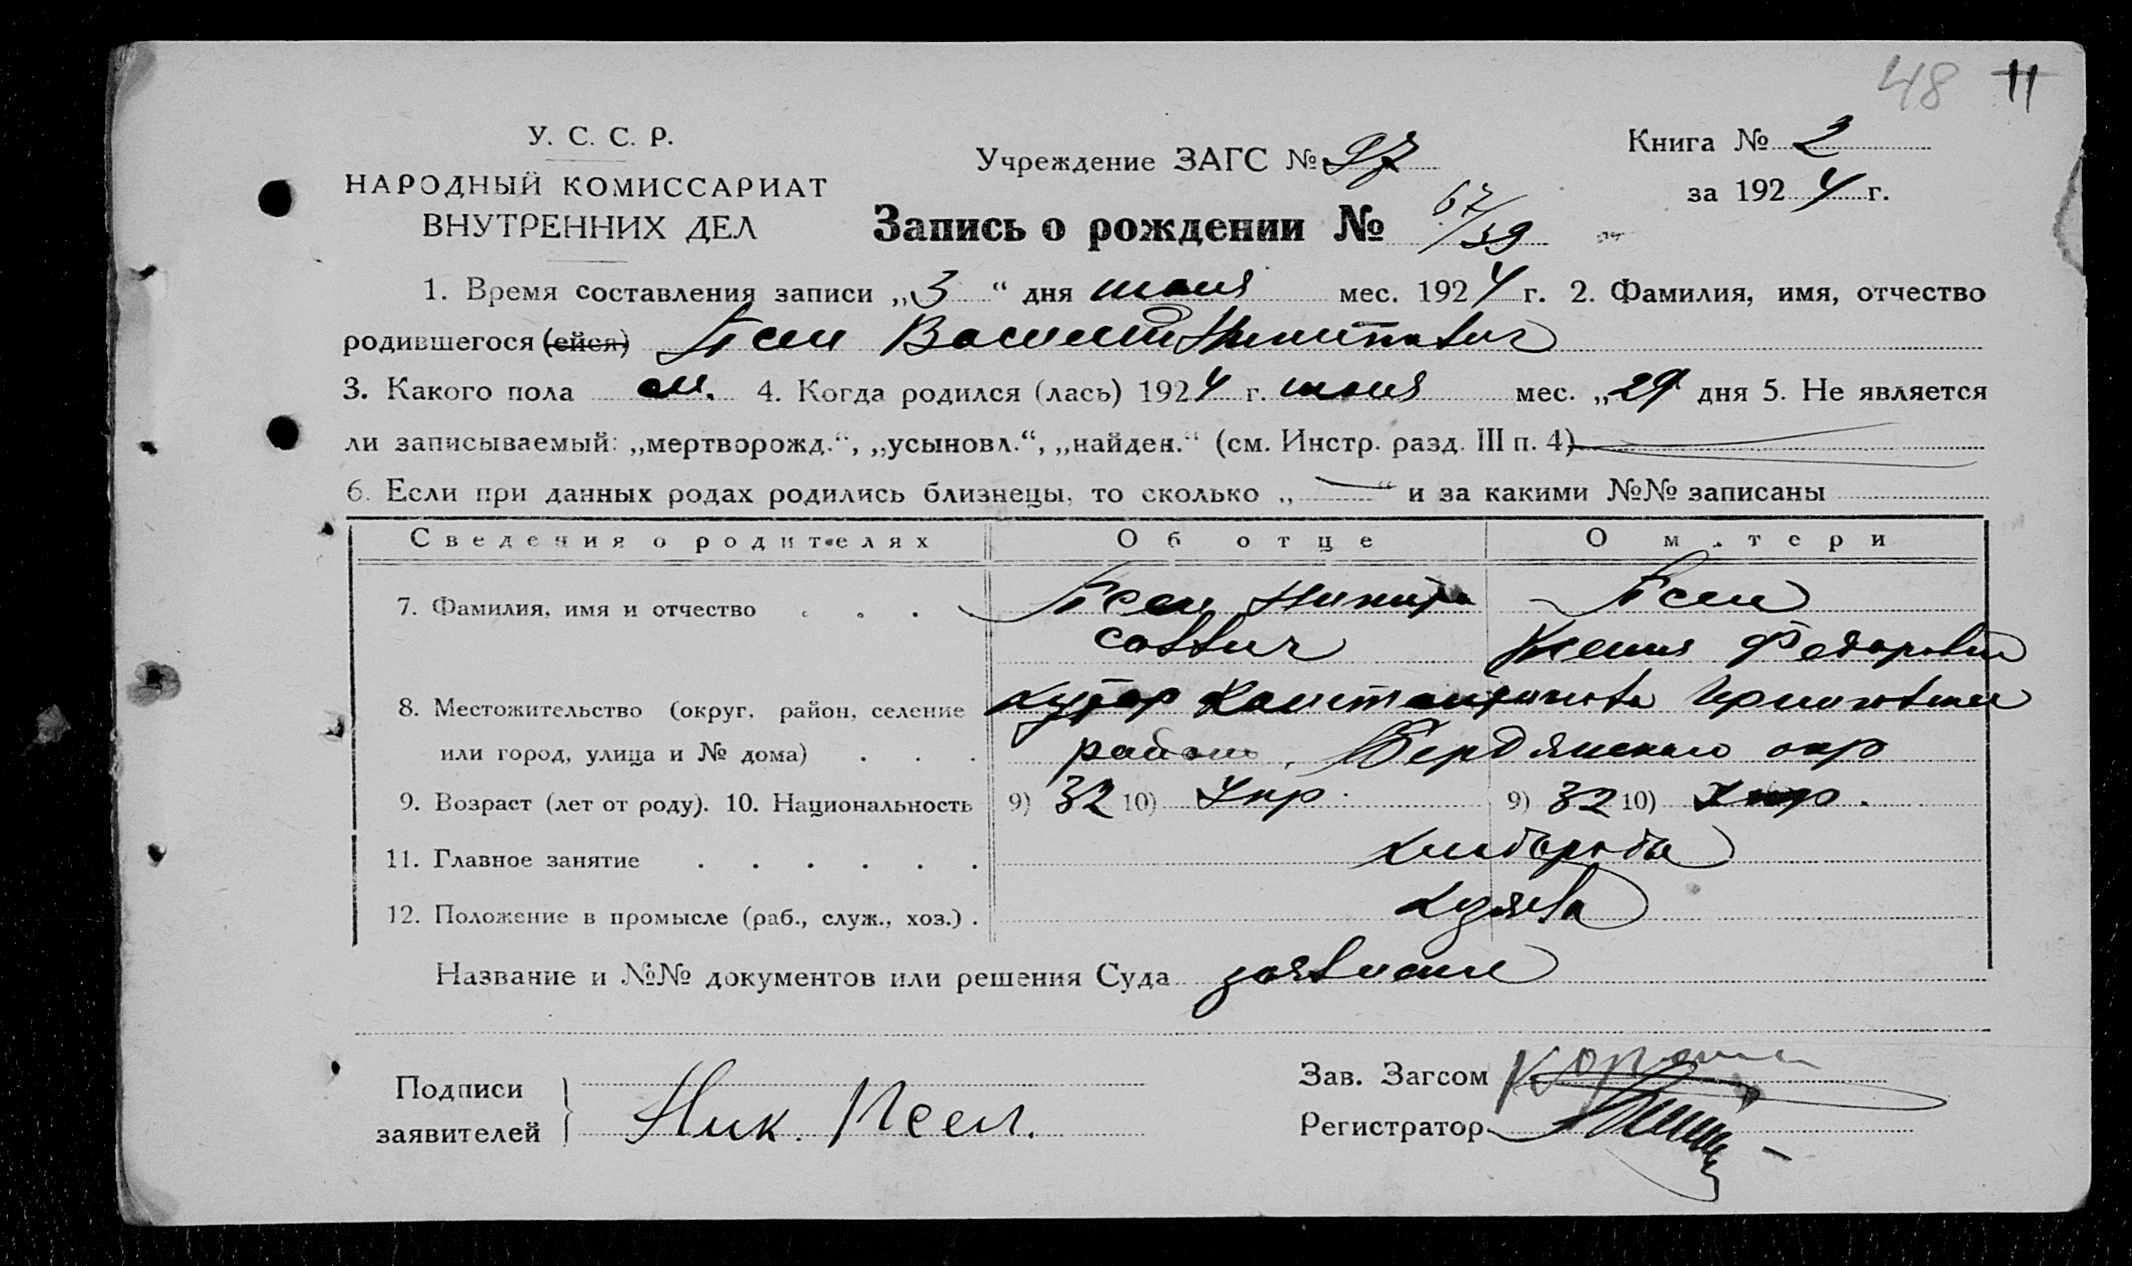 48 11
У. С. С. Р.
НАРОДНЫЙ КОМИССАРИАТ
ВНУТРЕННИХ ДЕЛ
Учреждение ЗАГС № 27
Книга № 2
за 1924 г.
Запись о рождении № 67/39
1. Время составления записи „3“ дня июля мес. 1924 г. 2. Фамилия, имя, отчество
родившегося (ейся) Псел Василий Никитович
3. Какого пола м. 4. Когда родился (лась) 1924 г. мес. „29 дня 5. Не является
ли записываемый: „мертворожд.“, „усыновл.“, „найден.“ (см. Инстр. разд. III п. 4)
6. Если при данных родах родились близнецы, то сколько „ “ и за какими №№ записаны
Сведения о родителях Об отце О матери
7. Фамилия, имя и отчество . . . Псел Никита Псел
Саввич Ксения Федоровна
8. Местожительство (округ, район, селение хутор
или город, улица и № дома) . . . район, Бердянского окр
9. Возраст (лет от роду). 10. Национальность 9) 32 10) Укр. 9) 32 10) Укр.
11. Главное занятие . . . . . . хлебороб
12. Положение в промысле (раб., служ., хоз.) . хозяева
Название и №№ документов или решения Суда заявление
Подписи
заявителей
Ник. Псел.
Зав. Загсом
Регистратор